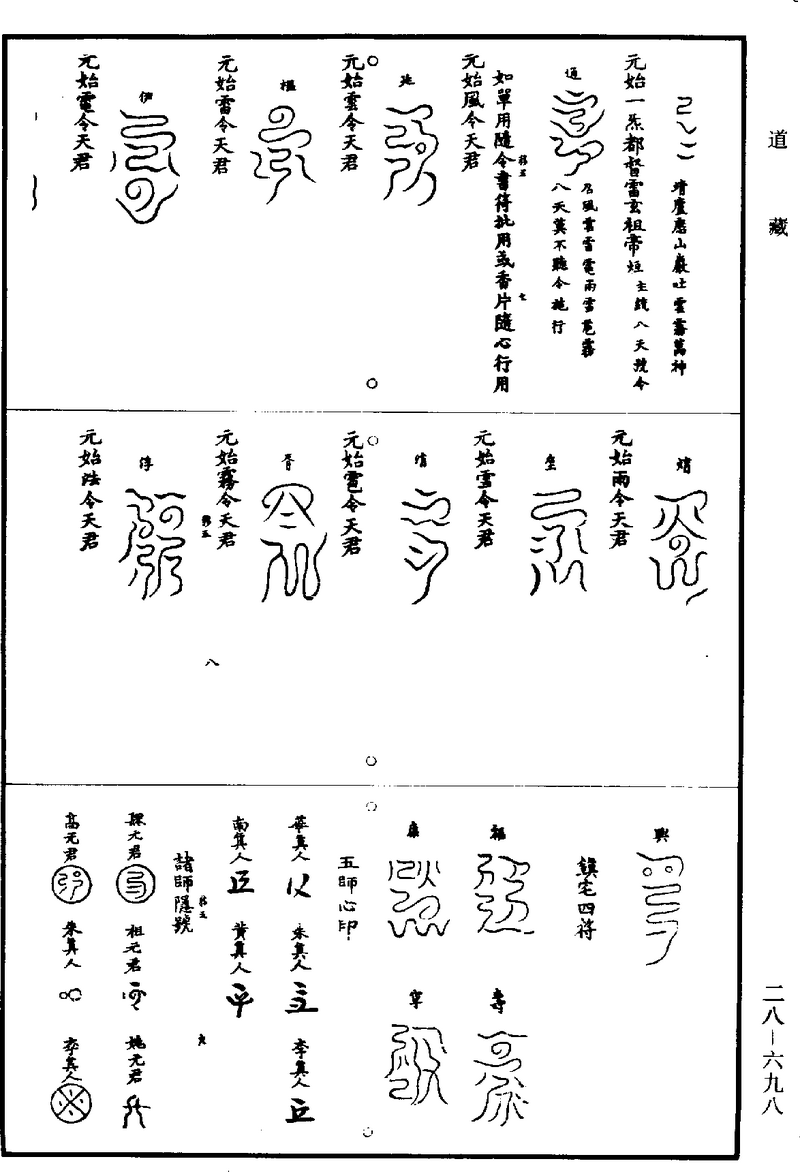 道藏
靖廬應山嶽吐雲霧萬神
元始一炁都督雷玄祖帝烜
主鎮八天號令
通
召風雲雷電雨雪雹霧
八天莫不聽令施行
如單用隨令書符批用或香片隨心行用
七
元始風令天君
元始雲令天君
樞
元始雷令天君
伊
元始電令天君
元始雨令天君
元始雪令天君
元始雹令天君
元始霧令天君
八
元始法令天君
興
鎮宅四符
福
壽
康
寧
五師心印
華真人
朱真人
李真人
南真人
黃真人
諸師隱號
九
祖元君
姚元君
高元君
朱真人
李真人
二八–六九八